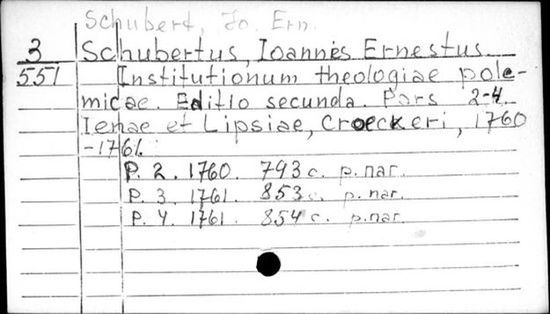 Schubert, Jo. Ern.
3 Schubertus, Ioannes Ernestus
551 Institutionum theologiae pole-
micae. Editio secunda. Pars 2-4.
Ienae et Lipsiae, Croeckeri, 1760
-1761.
P. 2. 1760. 793 c. p.nar.
P. 3. 1761. 853 c. p.nar.
P. 4. 1761. 854 c. p.nar.